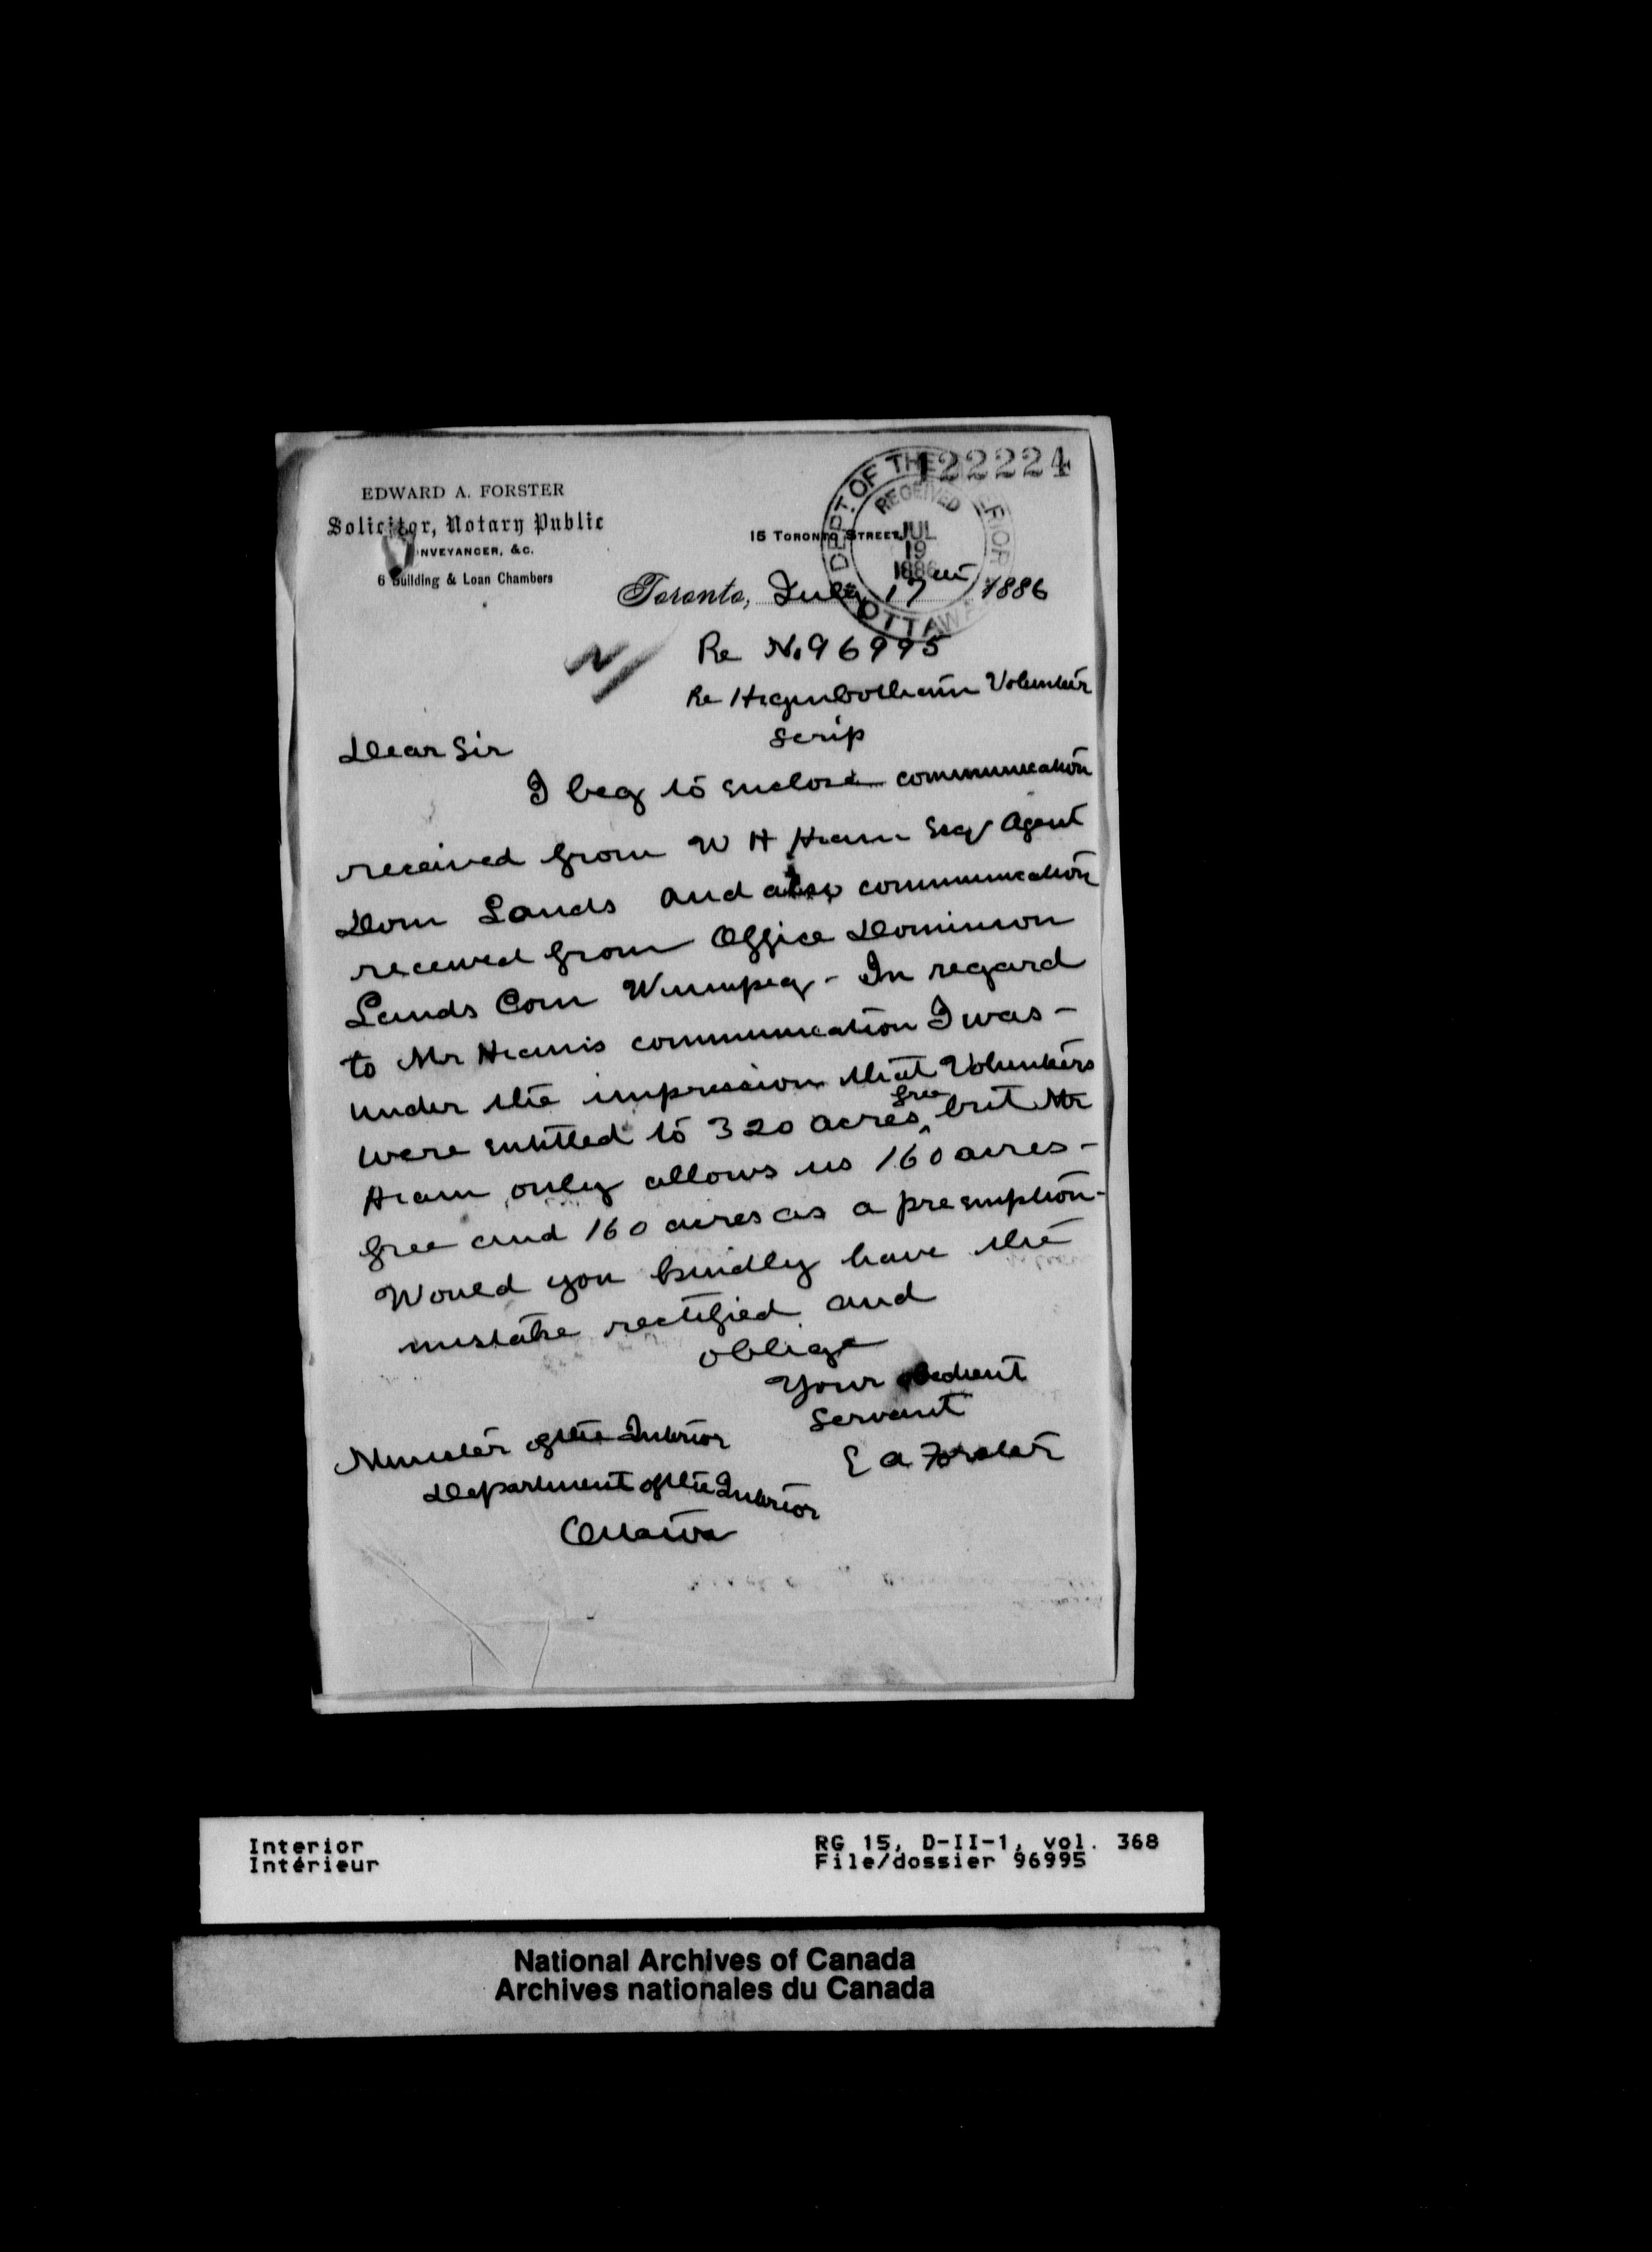 122224
EDWARD A. FORSTER
Solicitor, Notary Public
ONVEYANCER, &C.
6 Building & Loan Chambers
15 TORONTO STREET,
DEPT. OF THE INTERIOR
RECEIVED
JUL
19
1886
OTTAWA
Toronto, July 17th 1886
Re No 96995
Re Higinbotham Volunteer
Scrip
Dear Sir
I beg to enclose communication
received from W H Hiam Esq Agent
Dom Lands and also communication
received from Office Dominion
Lands Com Winnipeg - In regard
to Mr Hiam's communication I was -
under the impression that Volunteers
free
were entitled to 320 acres ‸ but Mr
Hiam only allows us 160 acres -
free and 160 acres as a pre emption -
Would you kindly have the
mistake rectified and
oblige
Your obedient
Servant
E A Forster
Minister of the Interior
Department of the Interior
Ottawa
Interior
Intérieur
RG 15, D-II-1, vol. 368
File/dossier 96995
National Archives of Canada
Archives nationales du Canada